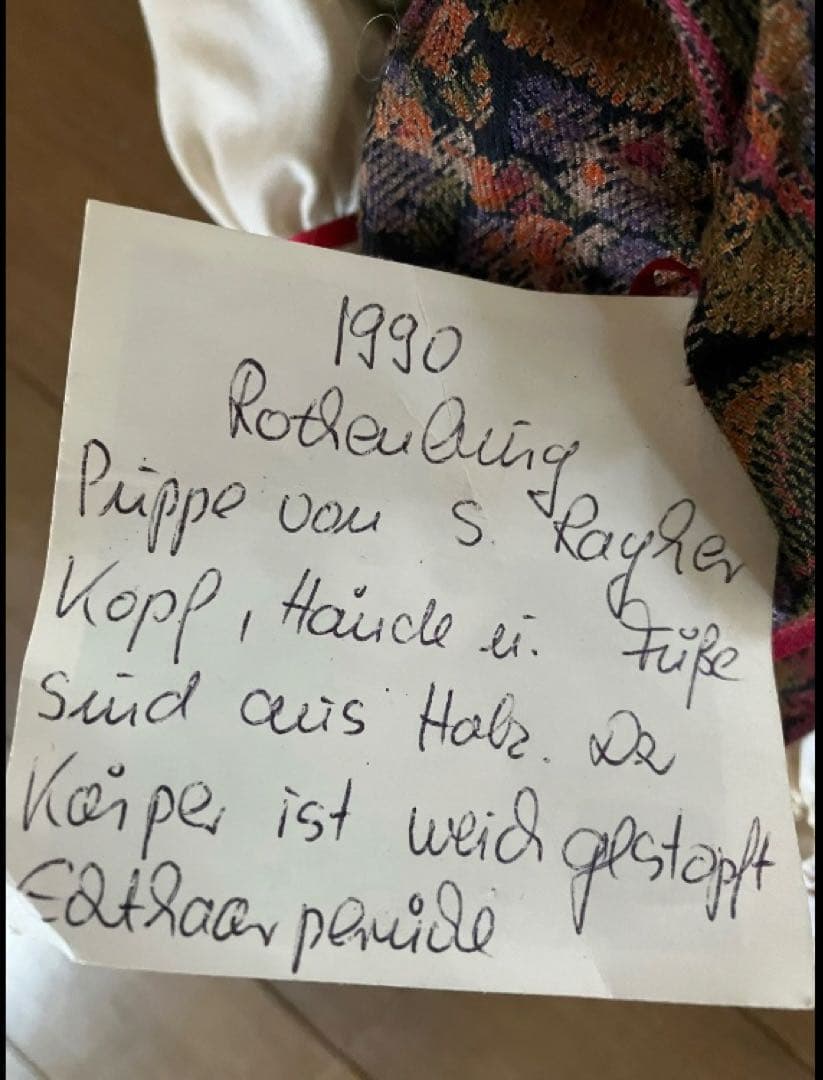 1990
Rothenburg
Puppe von S. Raygher
Kopf, Hände u. Füße
sind aus Holz. Der
Körper ist weich gestopft
Echthaarperücke